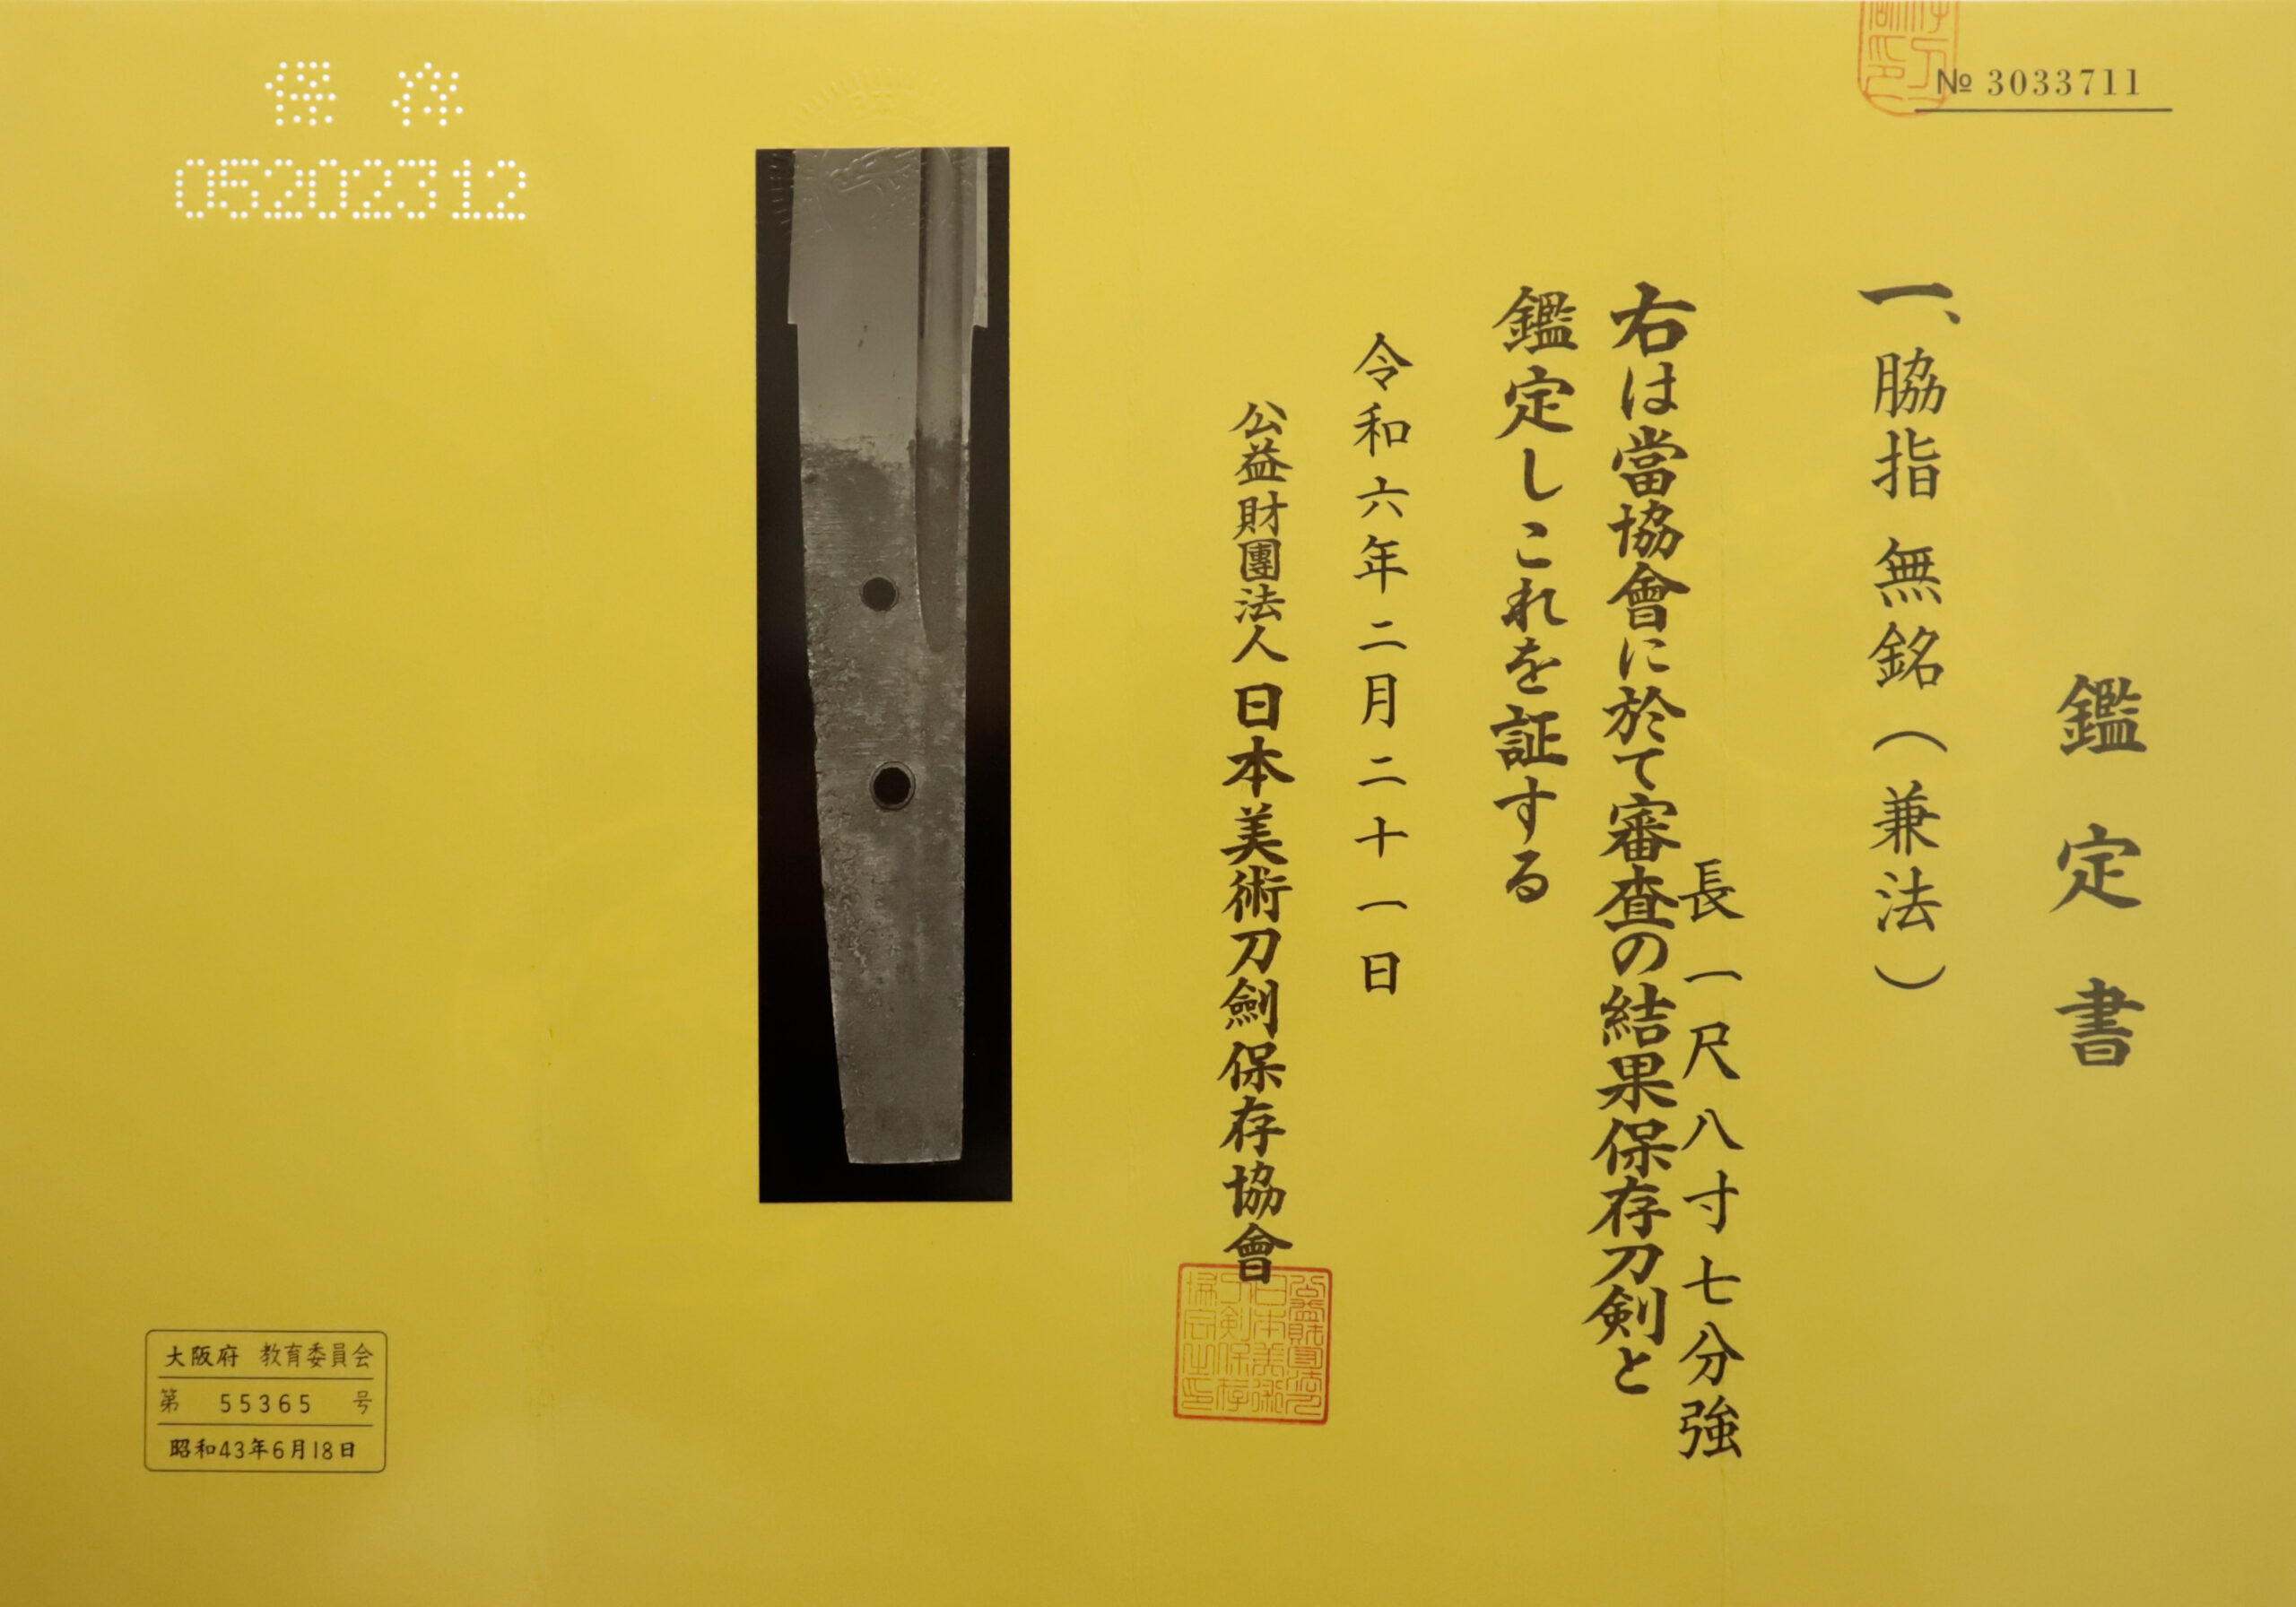 № 3033711
鑑定書
一、脇指 無銘（兼法）
長 一尺八寸七分強
右は當協會に於て審査の結果保存刀剣と
鑑定しこれを証する
令和六年二月二十一日
公益財團法人 日本美術刀劍保存協會
保存
05202312
大阪府 教育委員会
第 55365 号
昭和43年6月18日